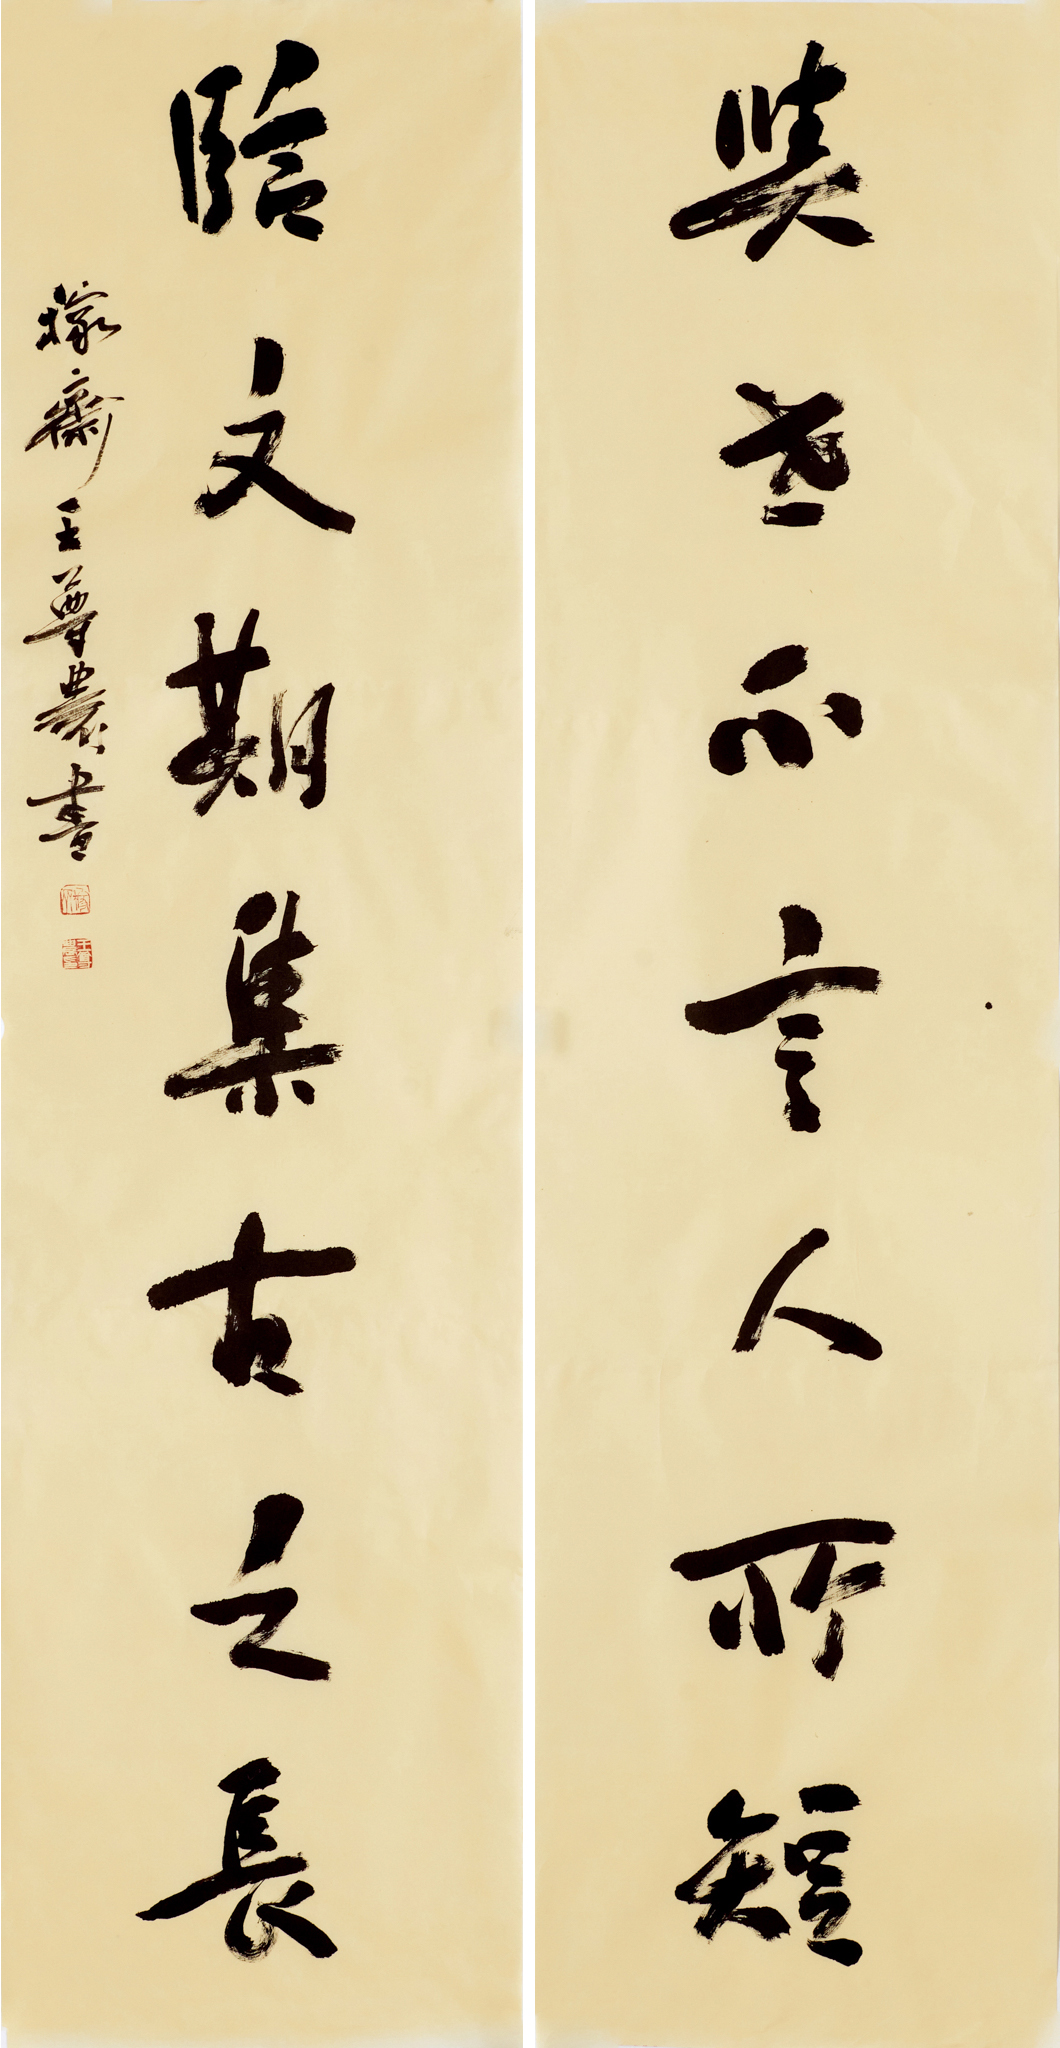 與世不言人所短
臨文期集古之長
稼齋王尊農書